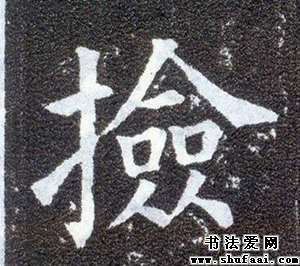 撿
书法爱网
www.shufaai.com